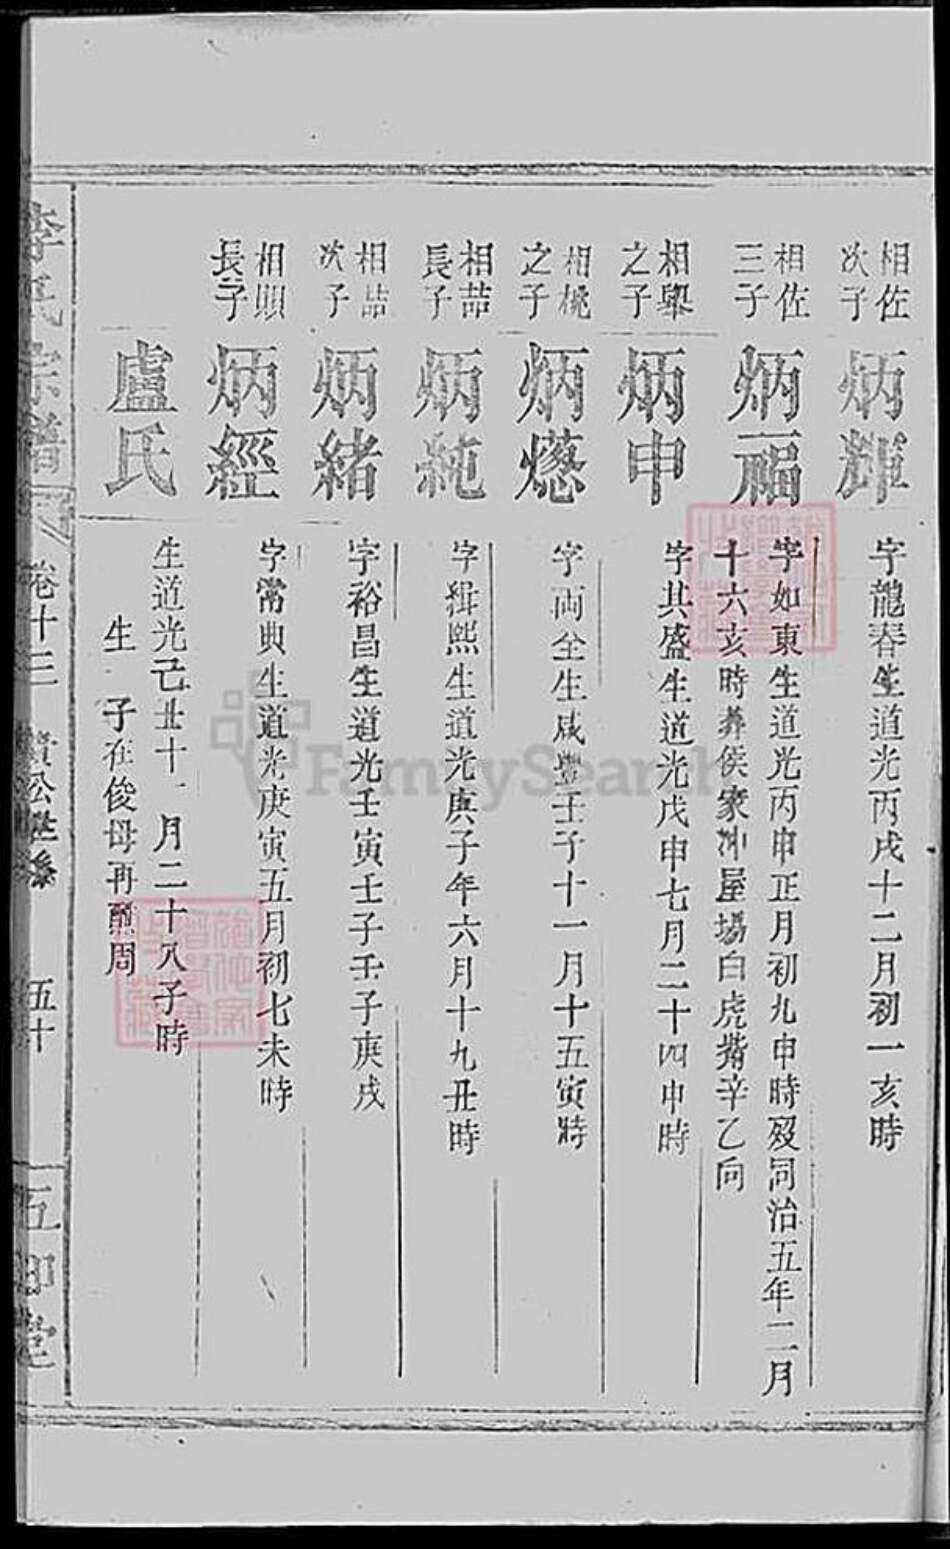 相佐
次子
炳輝
字龍春生道光丙戌十二月初一亥時
相佐
三子
炳福
字如東生道光丙申正月初九申時歿同治五年二月
十六亥時葬侯家冲屋場白虎觜辛乙向
相舉
之子
炳申
字其盛生道光戊申七月二十四申時
相桃
之子
炳
字両全生咸豐壬子十一月十五寅時
相喆
長子
炳純
字緝熙生道光庚子年六月十九丑時
相喆
次子
炳緒
字裕昌生道光壬寅壬子壬子庚戌
相顯
長子
炳經
字常典生道光庚寅五月初七未時
盧氏
生道光己丑十一月二十八子時
生 子在俊母再醮周
李氏宗譜
卷十三
貴公世系
五十
五卿堂
FamilySearch